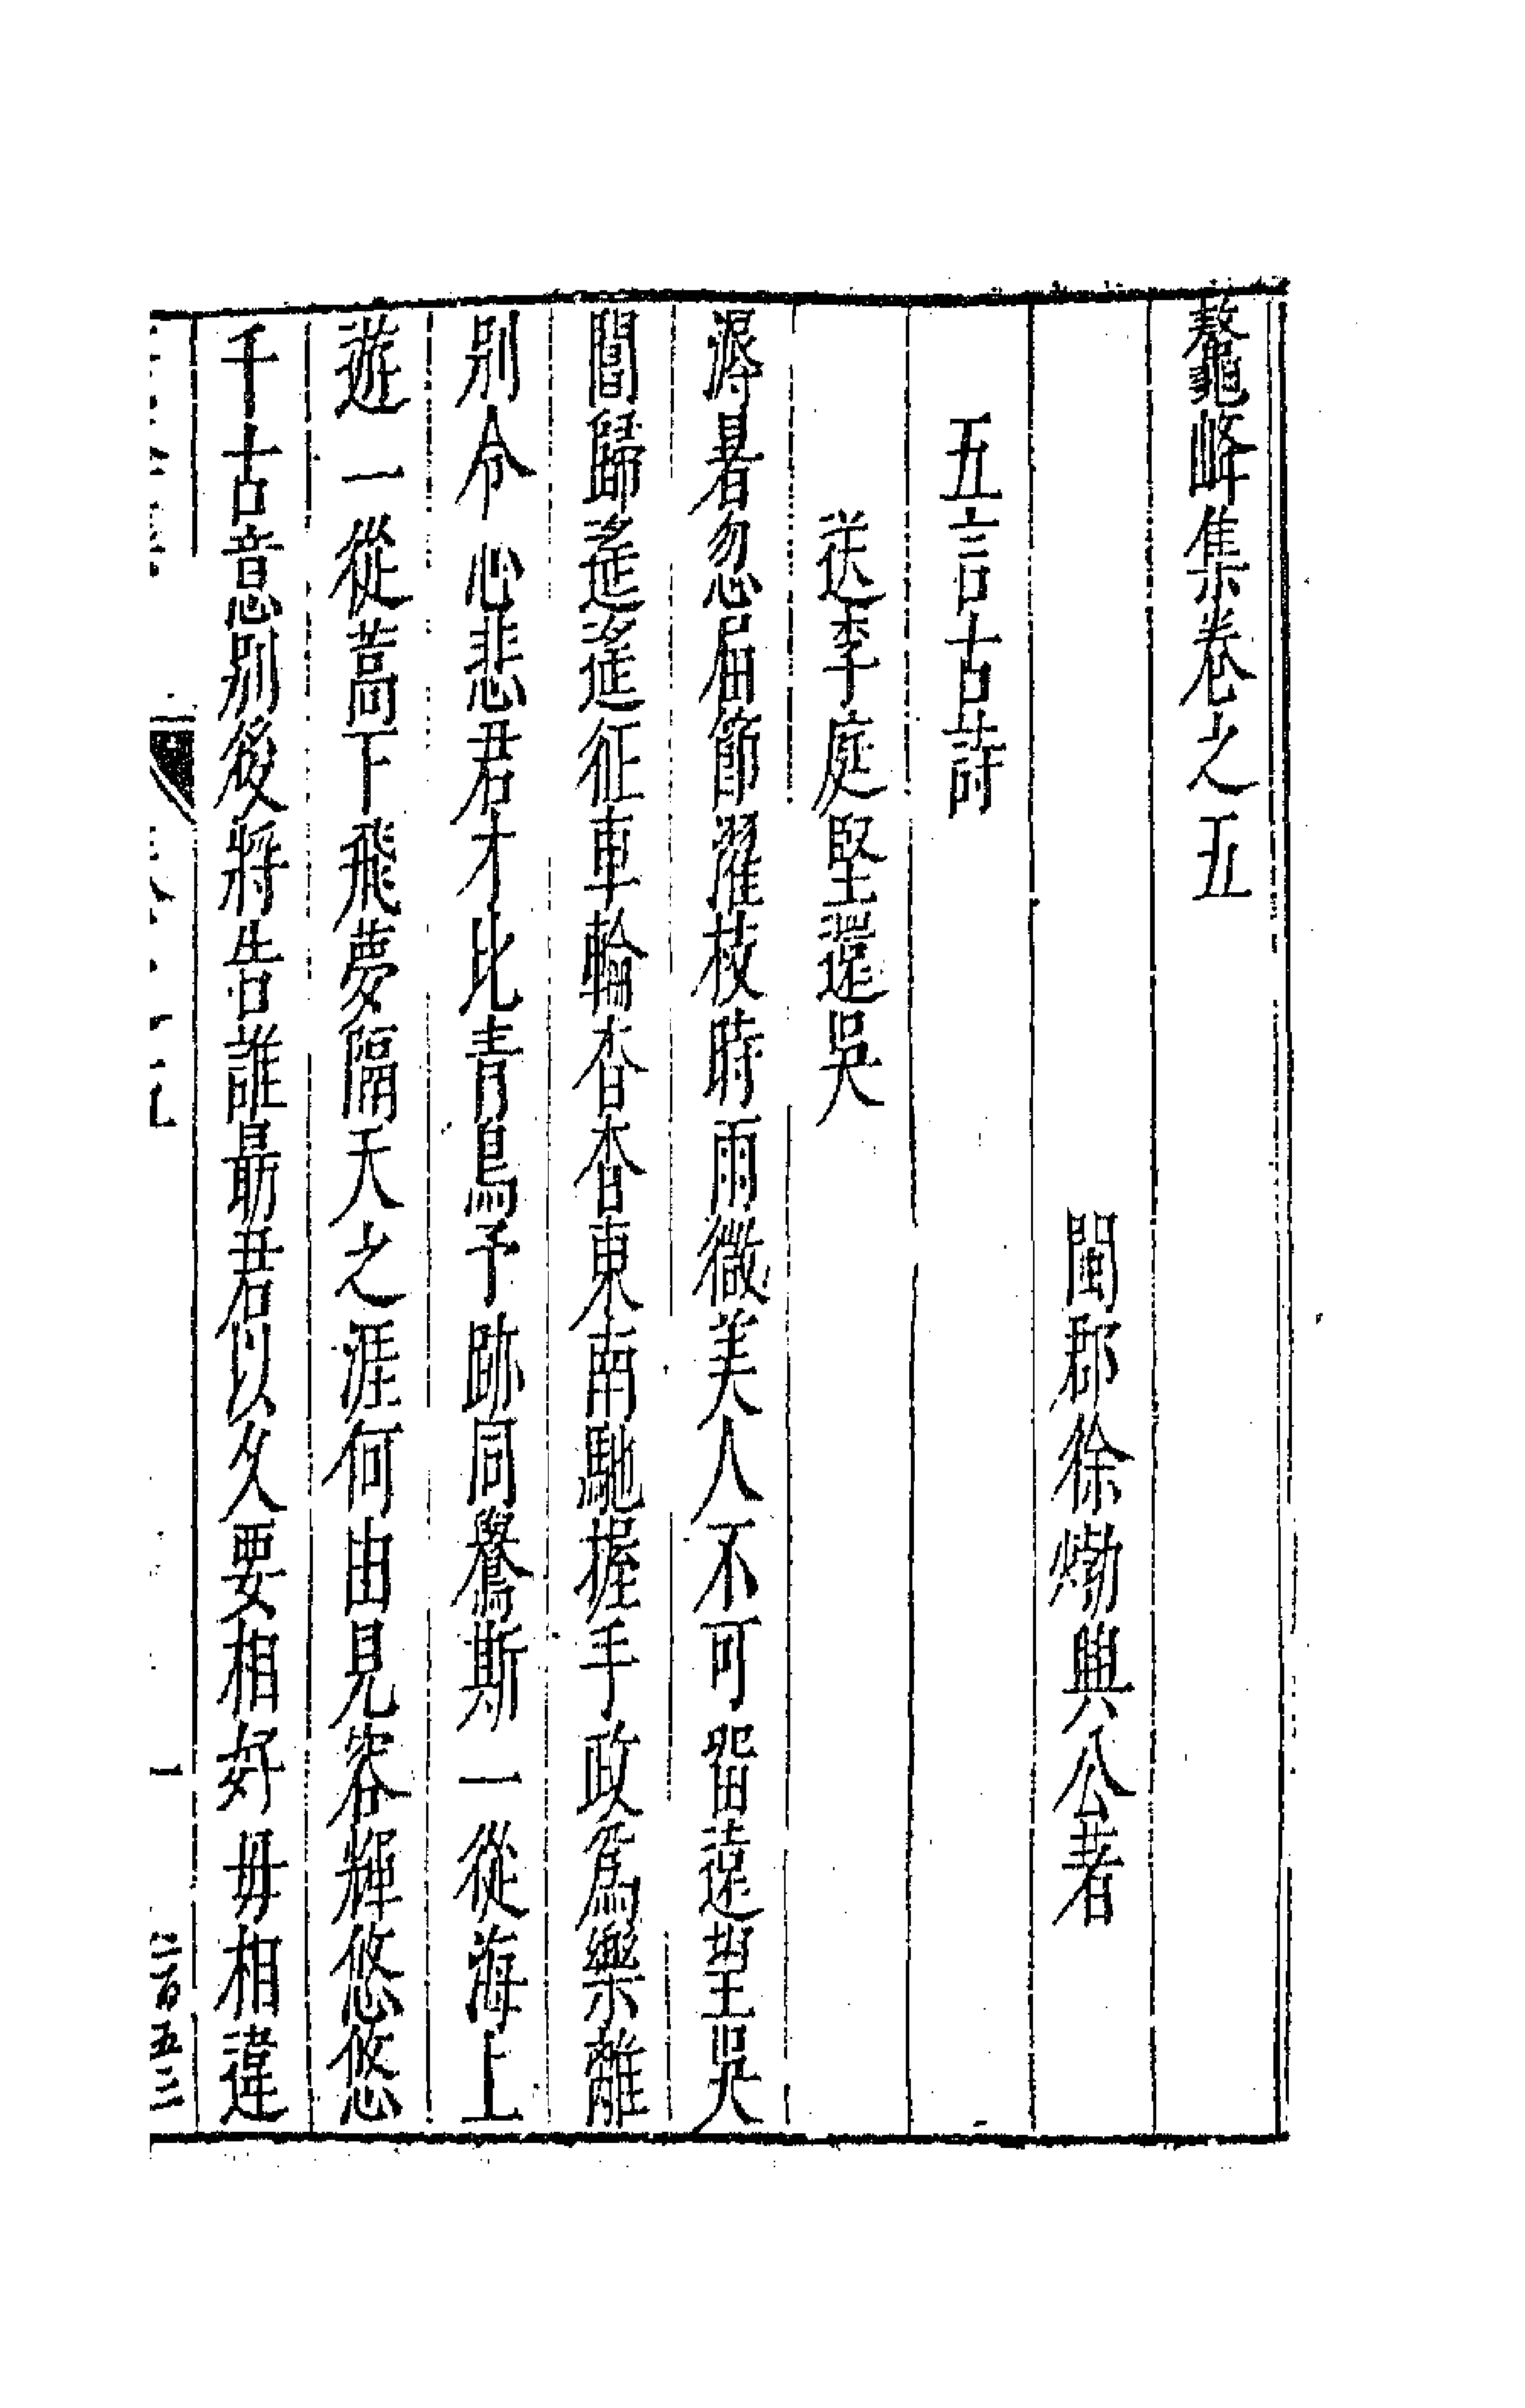 鼇峰集卷之五
閩郡徐𤊹興公著
五言古詩
送李庭堅還吳
溽暑忽屆節濯枝時雨微美人不可留遠望吳
閶歸遙遙征車輪杳杳東南馳握手政爲樂離
別令心悲君才比青鳥予跡同鷽斯一從海上
遊一從蒿下飛夢隔天之涯何由見容輝悠悠
千古意別後將告誰最君以久要相好毋相違
一
二百五三